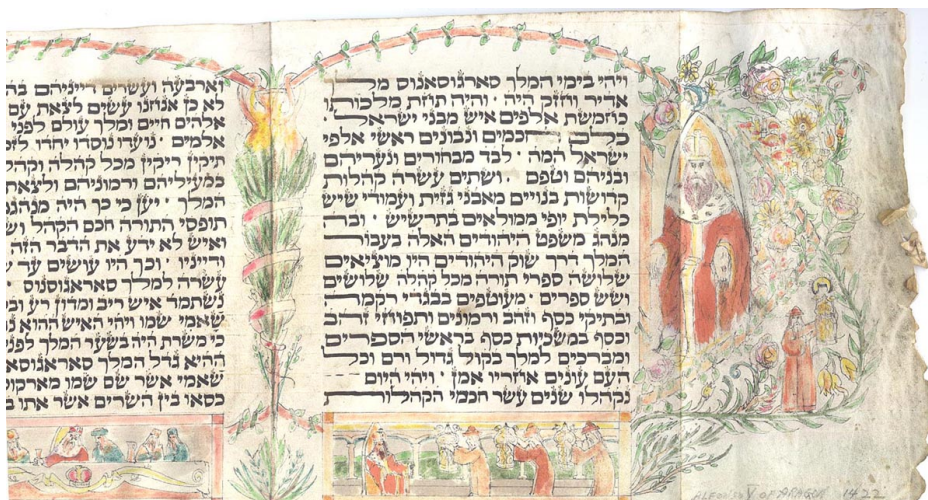 ויהי בימי המלך סארגוסאנוס מלך
אדיר וחזק היה · והיה תחת מלכותו
כחמשת אלפים איש מבני ישראל ·
כלם חכמים ונבונים ראשי אלפי
ישראל המה · לבד מבחורים ונעריהם
ובניהם וטפם · ושתים עשרה קהלות
קדושות בנויים מאבני גזית ועמודי שיש
כלילת יופי ממולאים בתרשיש · וכך
מנהג משפט היהודים האלה בעבור
המלך דרך שוק היהודים היו מוציאים
שלושה ספרי תורה מכל קהלה שלושים
ושש ספרים · מעוטפים בבגדי רקמה
ובתיקי כסף וזהב ורמונים ותפוחי זהב
וכסף במשכיות כסף בראשי הספרים
ומברכים למלך בקול גדול ורם וכל
העם עונים אחריו אמן · ויהי היום
נקהלו שנים עשר חכמי הקהלות
וארבעה ועשרים דייניהם
לא כן אנחנו עשים לצאת עם
אלהים חיים ומלך עולם לפני
אלמים · נועדו נוסדו יחדו
תיקין ריקין מכל קהלה
במעיליהם ורמוניהם
המלך · יען כי כך היה
תופסי התורה חכם הקהל
ואיש לא ידע את הדבר הזה
ודייניו · וכך היו עושים עד
עשרה למלך סאראגוסנוס ·
נשתמד איש ריב ומדון רע
שאמי שמו ויהי האיש ההוא
כי משרת היה בשער המלך
ההיא גדל המלך
שאמי אשר שם שמו
כסאו בין השרים אשר אתו
ALFONSO V OF ARAGON 1422